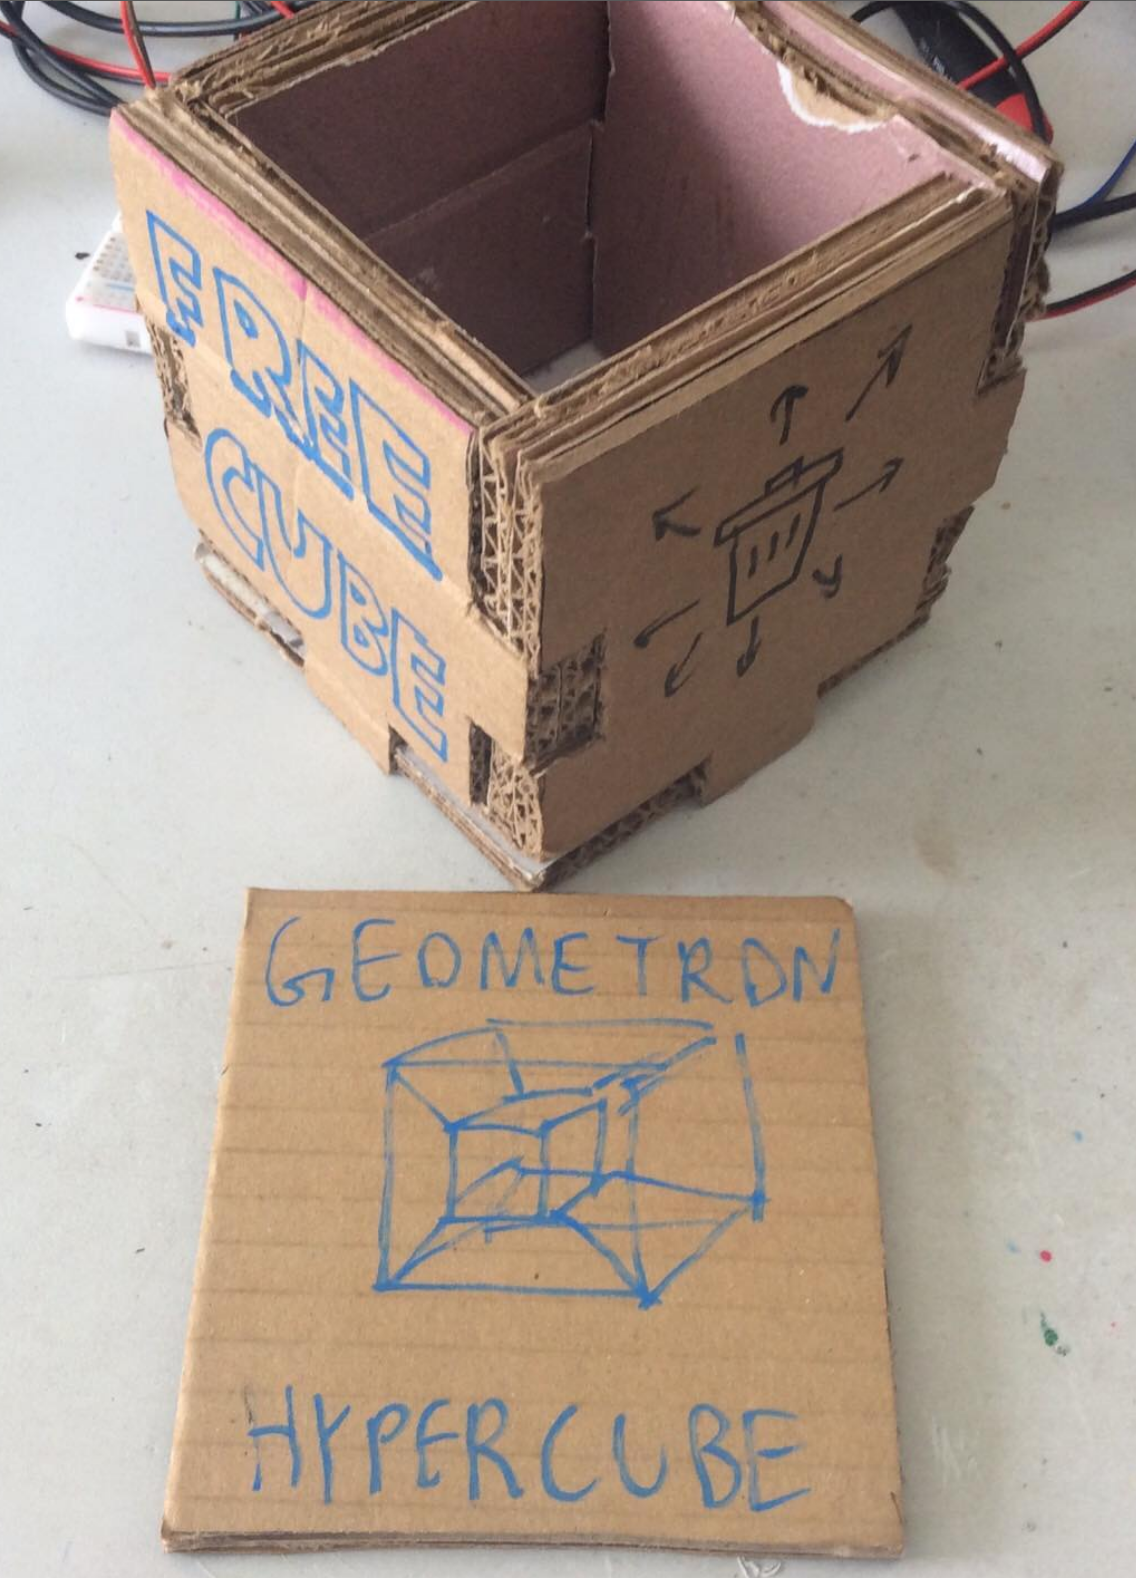 FREE
CUBE
GEOMETRON
HYPERCUBE